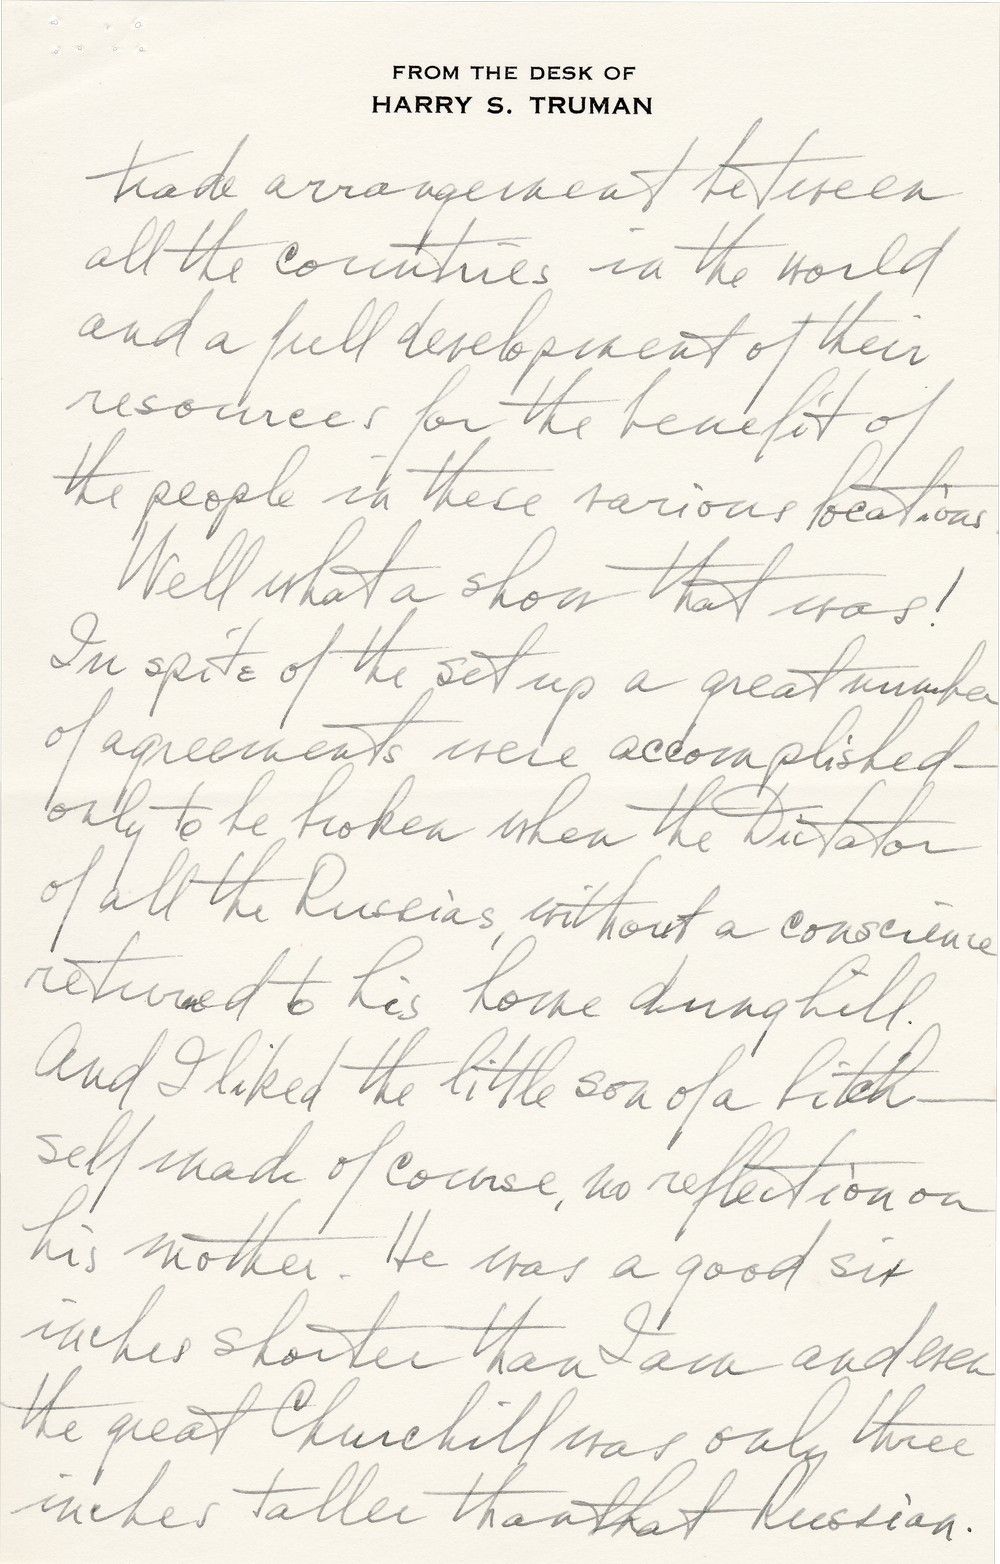 FROM THE DESK OF
HARRY S. TRUMAN
trade arrangement between
all the countries in the world
and a full development of their
resources for the benefit of
the people in these various locations.
Well what a show that was!
In spite of the set up a great number
of agreements were accomplished—
only to be broken when the Dictator
of all the Russias, without a conscience
returned to his home dunghill.
And I liked the little son of a bitch—
self made of course, no reflection on
his mother. He was a good six
inches shorter than I am and even
the great Churchill was only three
inches taller than that Russian.